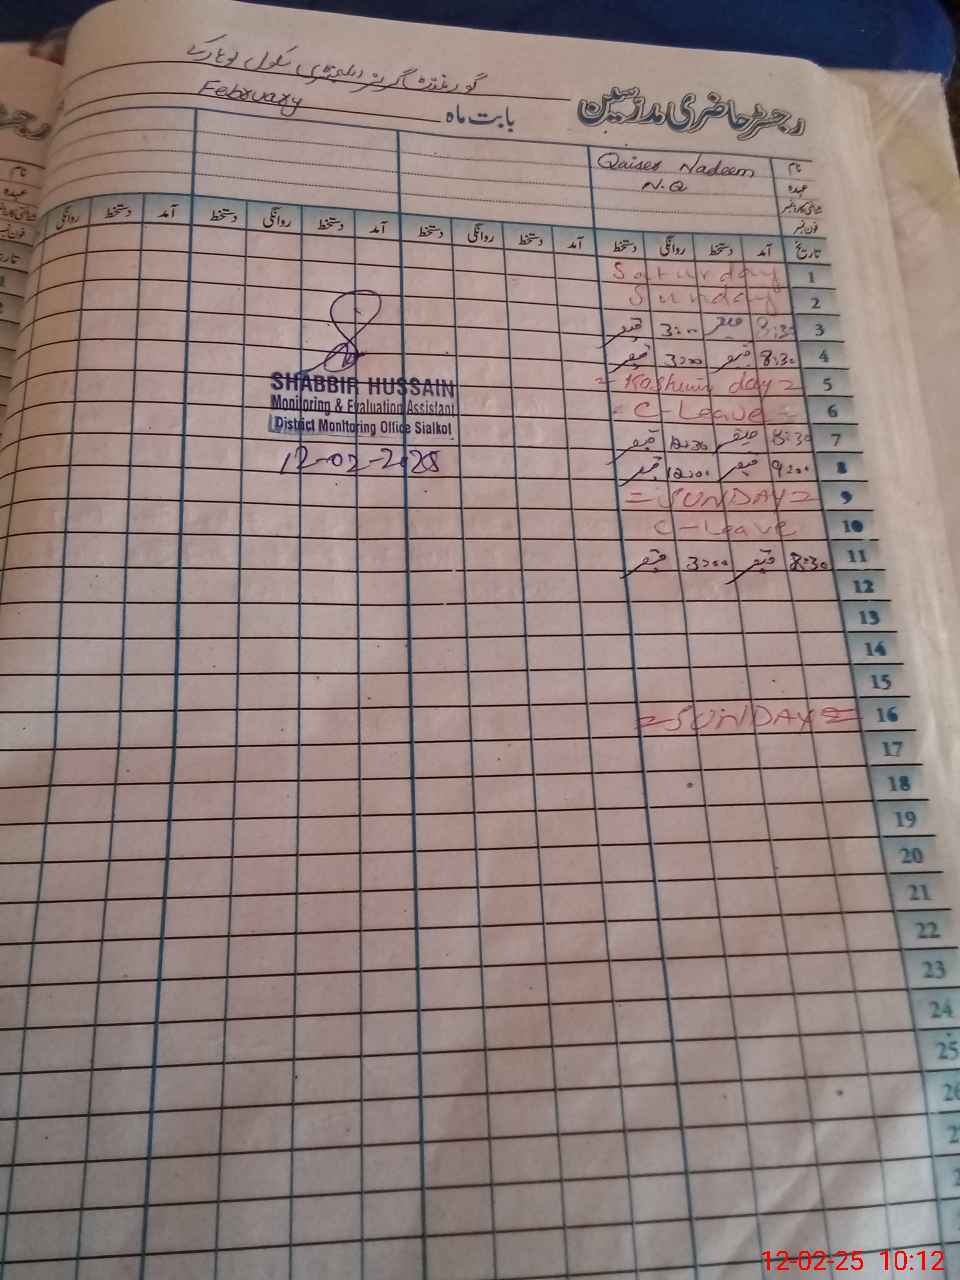 گورنمنٹ گرلز ایلیمنٹری سکول
رجسٹر حاضری مدرسین
بابت ماہ February
نام Qaiser Nadeem
عہدہ N.Q
شناختی کارڈ نمبر
فون نمبر
تاریخ آمد دستخط روانگی دستخط آمد دستخط روانگی دستخط آمد دستخط روانگی دستخط آمد دستخط روانگی
1 Saturday
2 Sunday
3 8:30 قیصر 3:00 قیصر
4 8:30 قیصر 3:00 قیصر
5 = Kashmir day =
6 - C-Leave -
7 8:30 قیصر 12:30 قیصر
8 9:00 قیصر 12:00 قیصر
9 = SUNDAY =
10 C-Leave
11 8:30 قیصر 3:00 قیصر
12
13
14
15
16 = SUNDAY =
17
18
19
20
21
22
23
24
25
SHABBIR HUSSAIN
Monitoring & Evaluation Assistant
District Monitoring Office Sialkot
12-02-2025
12-02-25 10:12